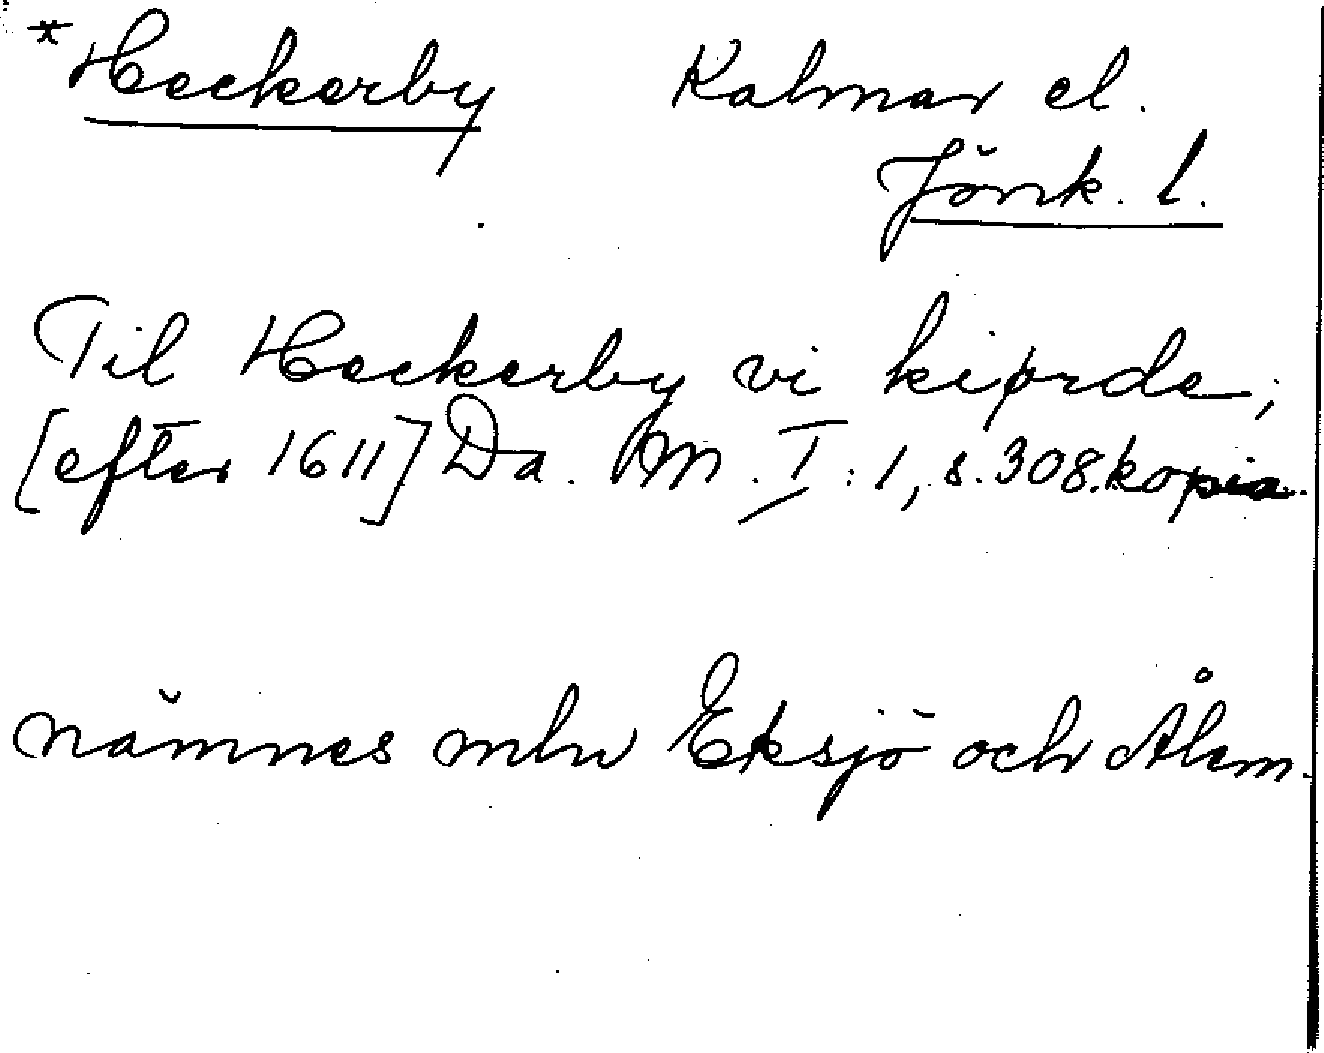 *Heckerby Kalmar el.
Jönk. l.
Til Heckerby vi kiørde,
[efter 1611] Da. M. I:1, s. 308. kopia.
nämnes mln Eksjö och Ålem.